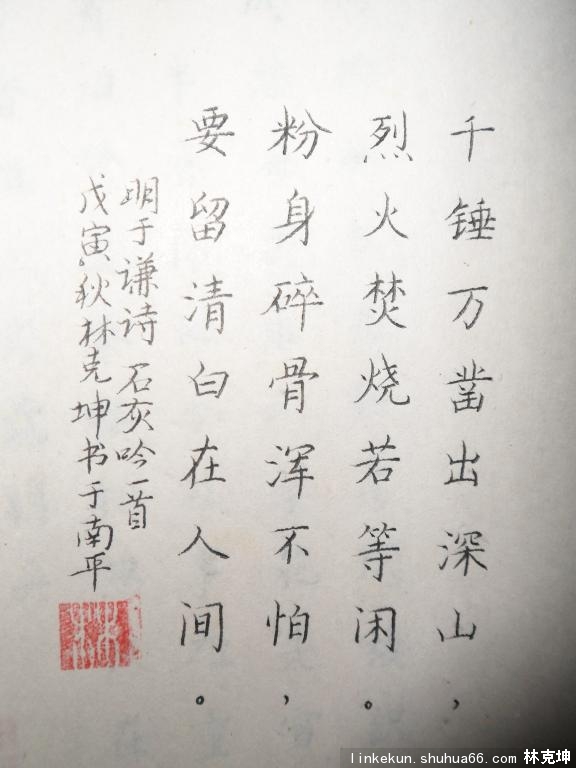 千锤万凿出深山，
烈火焚烧若等闲。
粉身碎骨浑不怕，
要留清白在人间。
明于谦诗石灰吟一首
戊寅秋林克坤书于南平
linkekun.shuhua66.com 林克坤